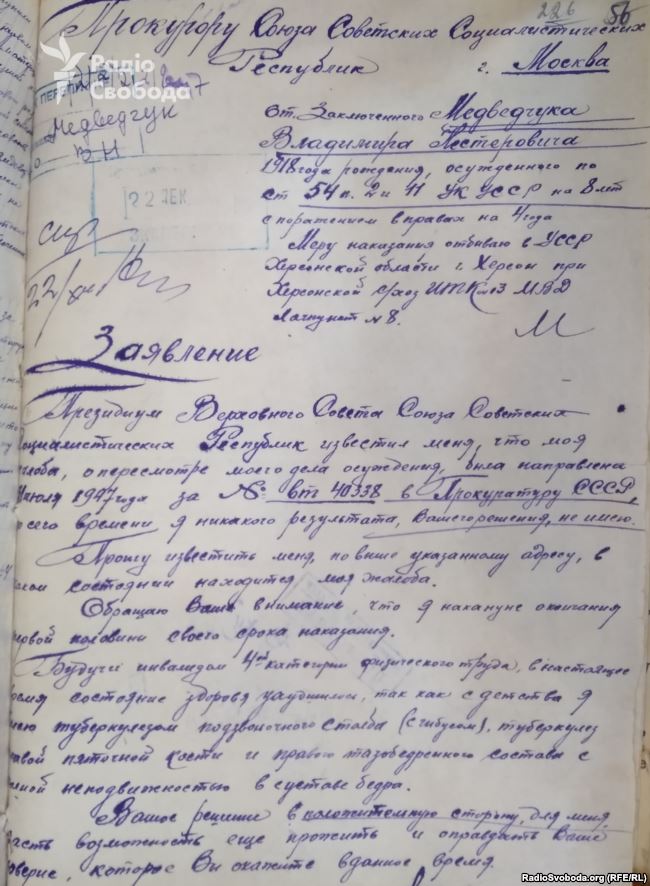 226 56
Прокурору Союза Советских Социалистических
Республик г. Москва
Радіо
Свобода
Медведчук
ВН
22 ДЕК
22/XII
От Заключенного Медведчука
Владимира Нестеровича
1918 года рождения, осужденного по
ст 54 п. 2 и 11 УК УССР на 8 лет
с поражением в правах на 4 года
Меру наказания отбываю в УССР
Херсонской области г. Херсон при
Херсонской с/хоз ИТК №3 МВД
Лагпункт №8.
Заявление
Президиум Верховного Совета Союза Советских
социалистических Республик известил меня, что моя
жалоба, о пересмотре моего дела осуждения, была направлена
июля 1947 года за № вт 40338 в Прокуратуру СССР,
сего времени я никакого результата, Вашего решения, не имею.
Прошу известить меня, по выше указанному адресу, в
каком состоянии находится моя жалоба.
Обращаю Ваше внимание, что я накануне окончания
первой половини своего срока наказания.
Будучи инвалидом 4ой категории физического труда, в настоящее
время состояние здоровя ухудшилось, так как с детства я
болею туберкулезом подзвоночного столба (с гибусом), туберкулез
правой пяточной кости и правого тазобедренного состава с
полной неподвижностью в суставе бедра.
Вашое решение в положительную сторону, для меня,
дасть возможность еще прожить и оправдать Ваше
доверие, которое Ви окажите в данное время.
RadioSvoboda.org (RFE/RL)